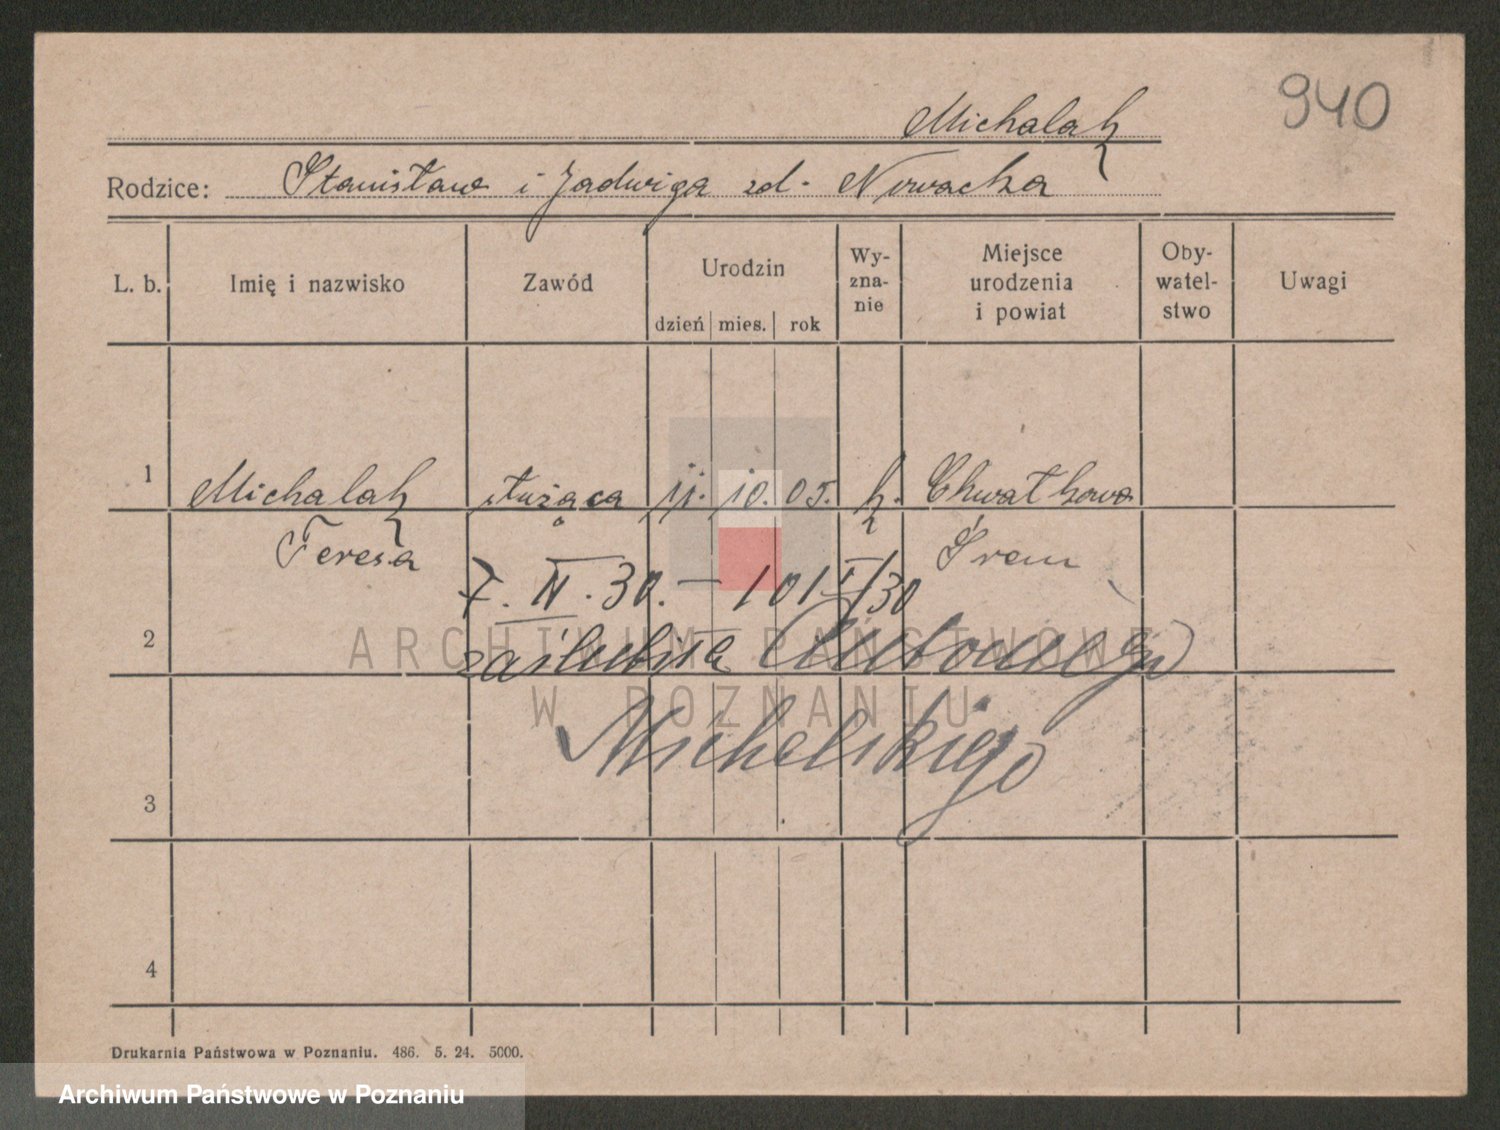 940
Michalak
Rodzice: Stanisław i Jadwiga zd. Nowacka
L. b. Imię i nazwisko Zawód Urodzin dzień mies. rok Wy-zna-nie Miejsce urodzenia i powiat Oby-watel-stwo Uwagi
1 Michalak służąca 11. 10. 05. k. Chwałkowo
Teresa Śrem
7. IV. 30. — 101
/30
2 zaślubiła
ARCHIWUM PAŃSTWOWE
W POZNANIU
Michelskiego
3
4
Drukarnia Państwowa w Poznaniu. 486. 5. 24. 5000.
Archiwum Państwowe w Poznaniu